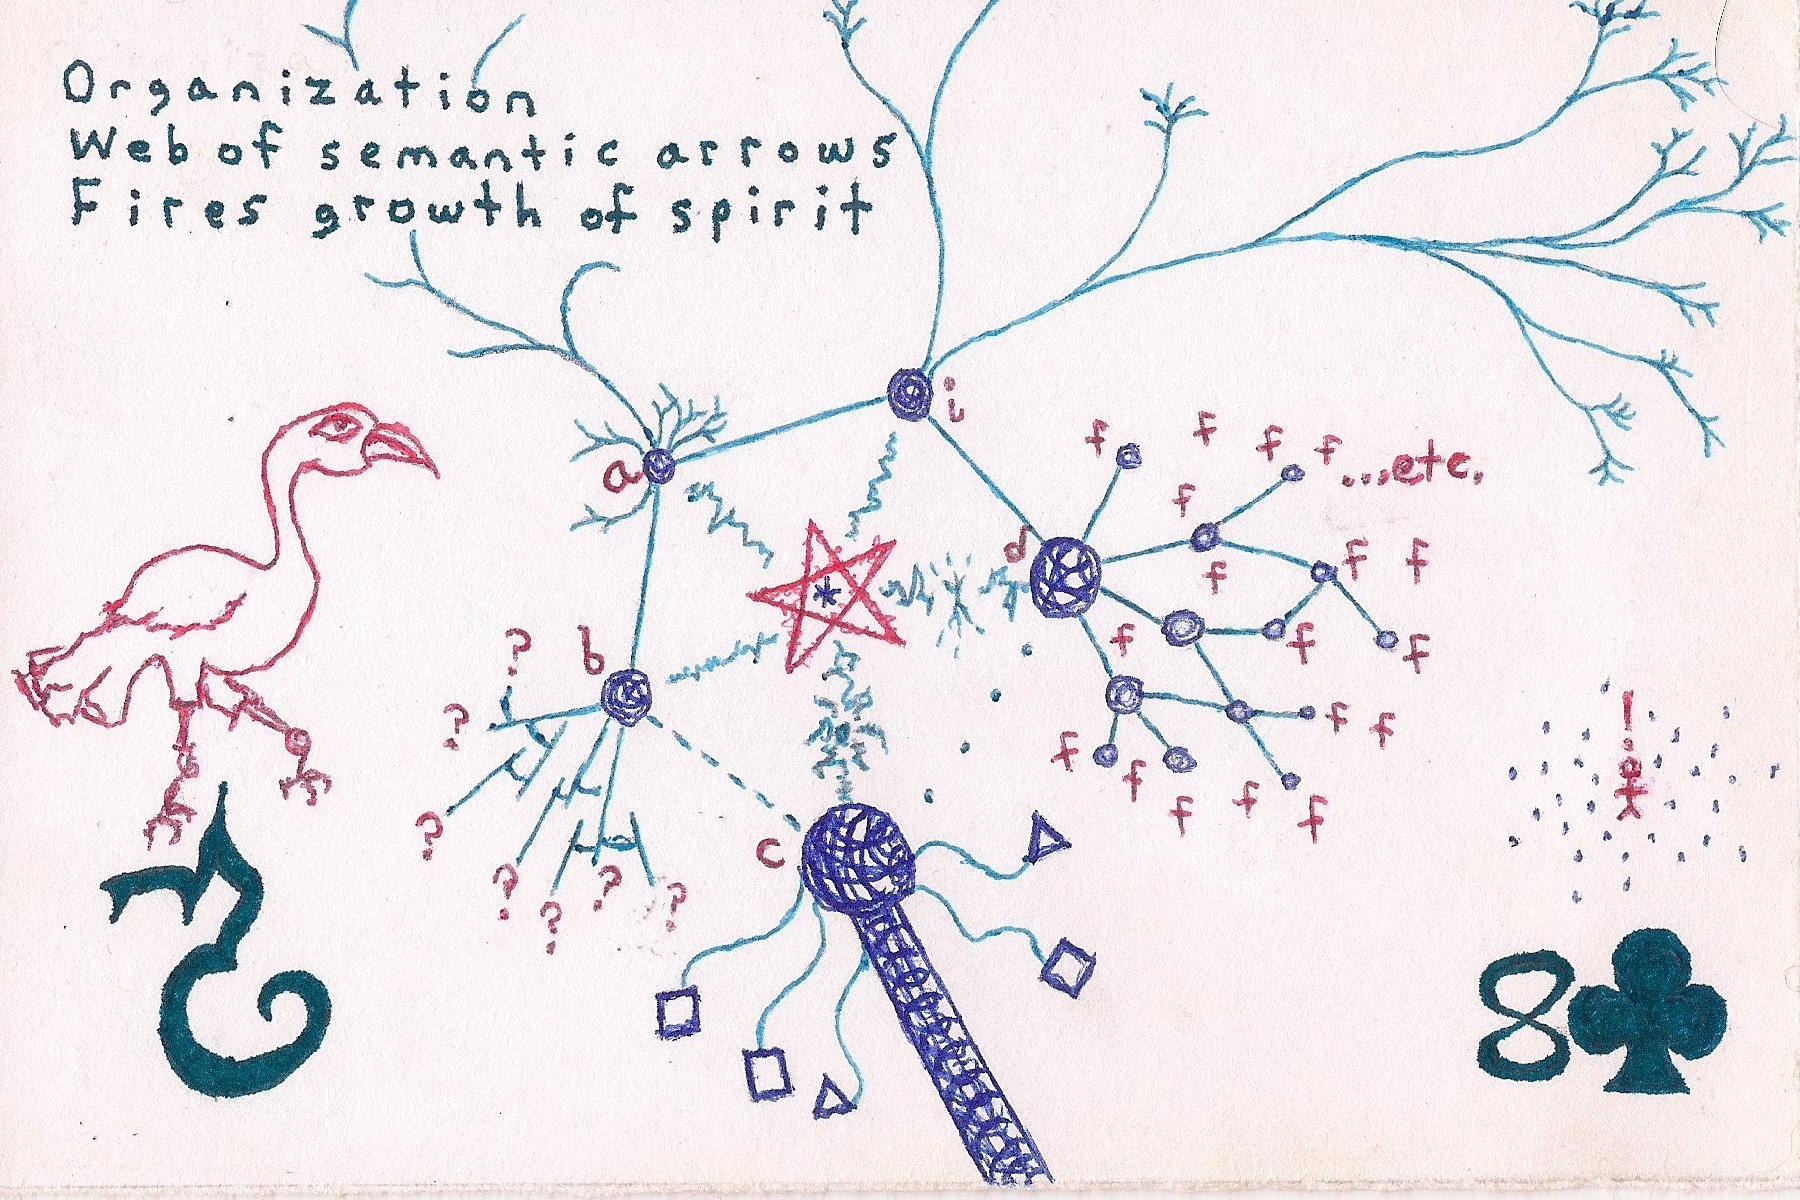 Organization
Web of semantic arrows
Fires growth of spirit
i
a
f f f f...etc.
f
d
f f f
b
?
f f f
?
f f
!
f f f f f
?
c
? ? ? ?
8